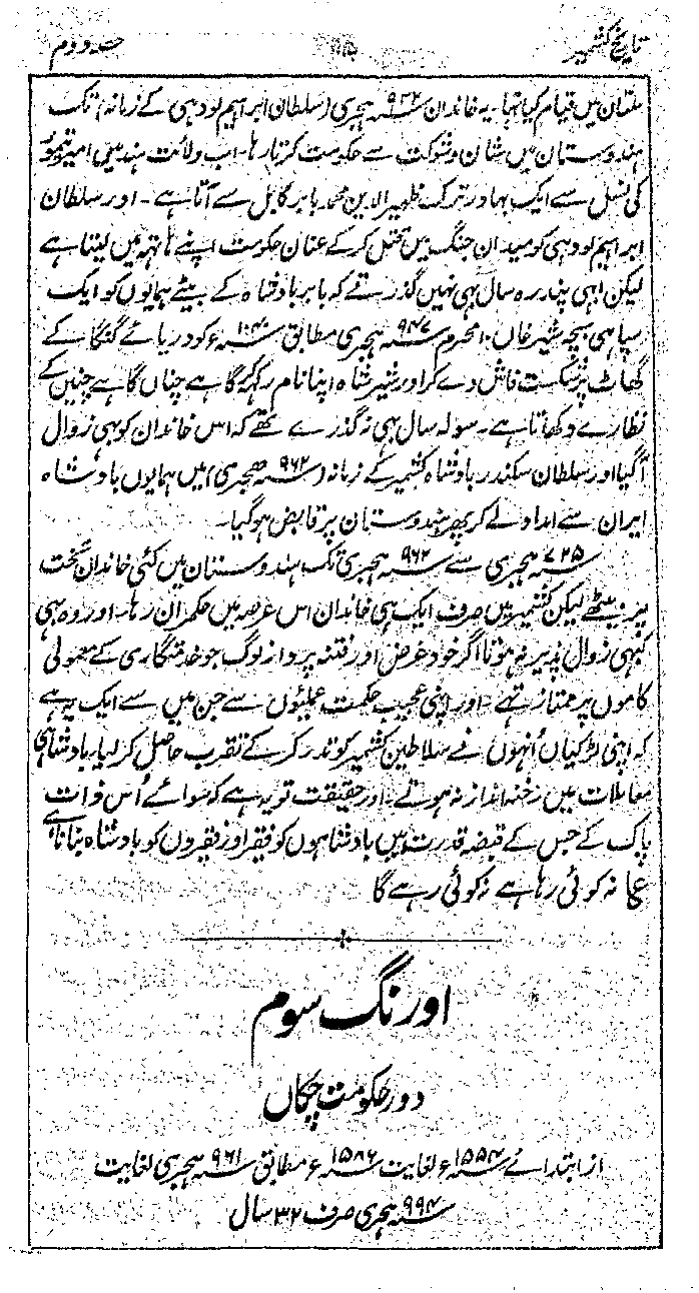 تاریخ کشمیر
حصہ دوم
ملتان میں قیام کیا تہا۔ یہ خاندان ۹۳۲؁ ہجری (سلطان ابراہیم لودہی کے زمانہ) تک
ہندوستان میں شان و شوکت سے حکومت کرتا رہا۔ اب ولائت ہند میں امیر تیمور
کی نسل سے ایک بہادر ترک ظہیر الدین محمد بابر کابل سے آتا ہے۔ اور سلطان
ابراہیم لودہی کو میدان جنگ میں قتل کر کے عنان حکومت اپنے ہاتہہ میں لیتا ہے
لیکن ابہی پندرہ سال بہی نہیں گذرتے کہ بابر بادشاہ کے بیٹے ہمایوں کو ایک
سپاہی بچہ شیر خاں ۱۰ محرم ۹۴۷؁ ہجری مطابق ۱۵۴۰؁ء کو دریائے گنگا کے
گھاٹ پر شکست فاش دے کر اور شیر شاہ اپنا نام رکہہ کر گاہے چناں گاہے چنیں کے
نظارے دکھاتا ہے۔ سولہ سال بہی نہ گذرے تھے کہ اس خاندان کو بہی زوال
آگیا اور سلطان سکندر بادشاہ کشمیر کے زمانہ (۹۶۲؁ ہجری) میں ہمایوں بادشاہ
ایران سے امداد لے کر پھر ہندوستان پر قابض ہو گیا۔
۷۲۵؁ ہجری سے ۹۶۲؁ ہجری تک ہندوستان میں کئی خاندان تخت
پر بیٹھے لیکن کشمیر میں صرف ایک ہی خاندان اس عرصہ میں حکمران رہا۔ اور وہ بہی
کبہی زوال پذیر نہ ہوتا اگر خود غرض اور فتنہ پرداز لوگ جو خدمتگاری کے معمولی
کاموں پر ممتاز تہے۔ اور اپنی عجیب حکمت عملیوں سے جن میں سے ایک یہ ہے
کہ اپنی لڑکیاں اُنہوں نے سلاطین کشمیر کو نذر کر کے تقرب حاصل کر لیا۔ بادشاہی
معاملات میں رخنہ انداز نہ ہوتے۔ اور حقیقت تو یہ ہے کہ سوائے اُس ذات
پاک کے جس کے قبضہ قدرت میں بادشاہوں کو فقیر اور فقیروں کو بادشاہ بنانا ہے
ع نہ کوئی رہا ہے نہ کوئی رہے گا
اورنگ سوم
دور حکومت چکاں
از ابتدائے ۱۵۵۴؁ء لغایت ۱۵۸۶؁ء مطابق ۹۶۱؁ ہجری لغایت
۹۹۴؁ ہجری صرف ۳۲ سال